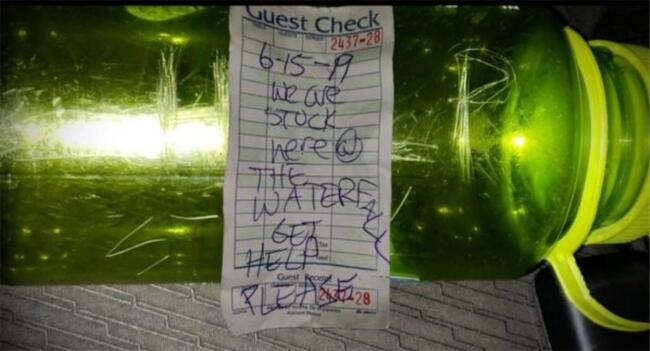 Guest Check
2437-28
6-15-19
We are
STUCK
here @
THE
WATERFALL
GET
HELP
PLEASE
Guest Receipt
2437-28